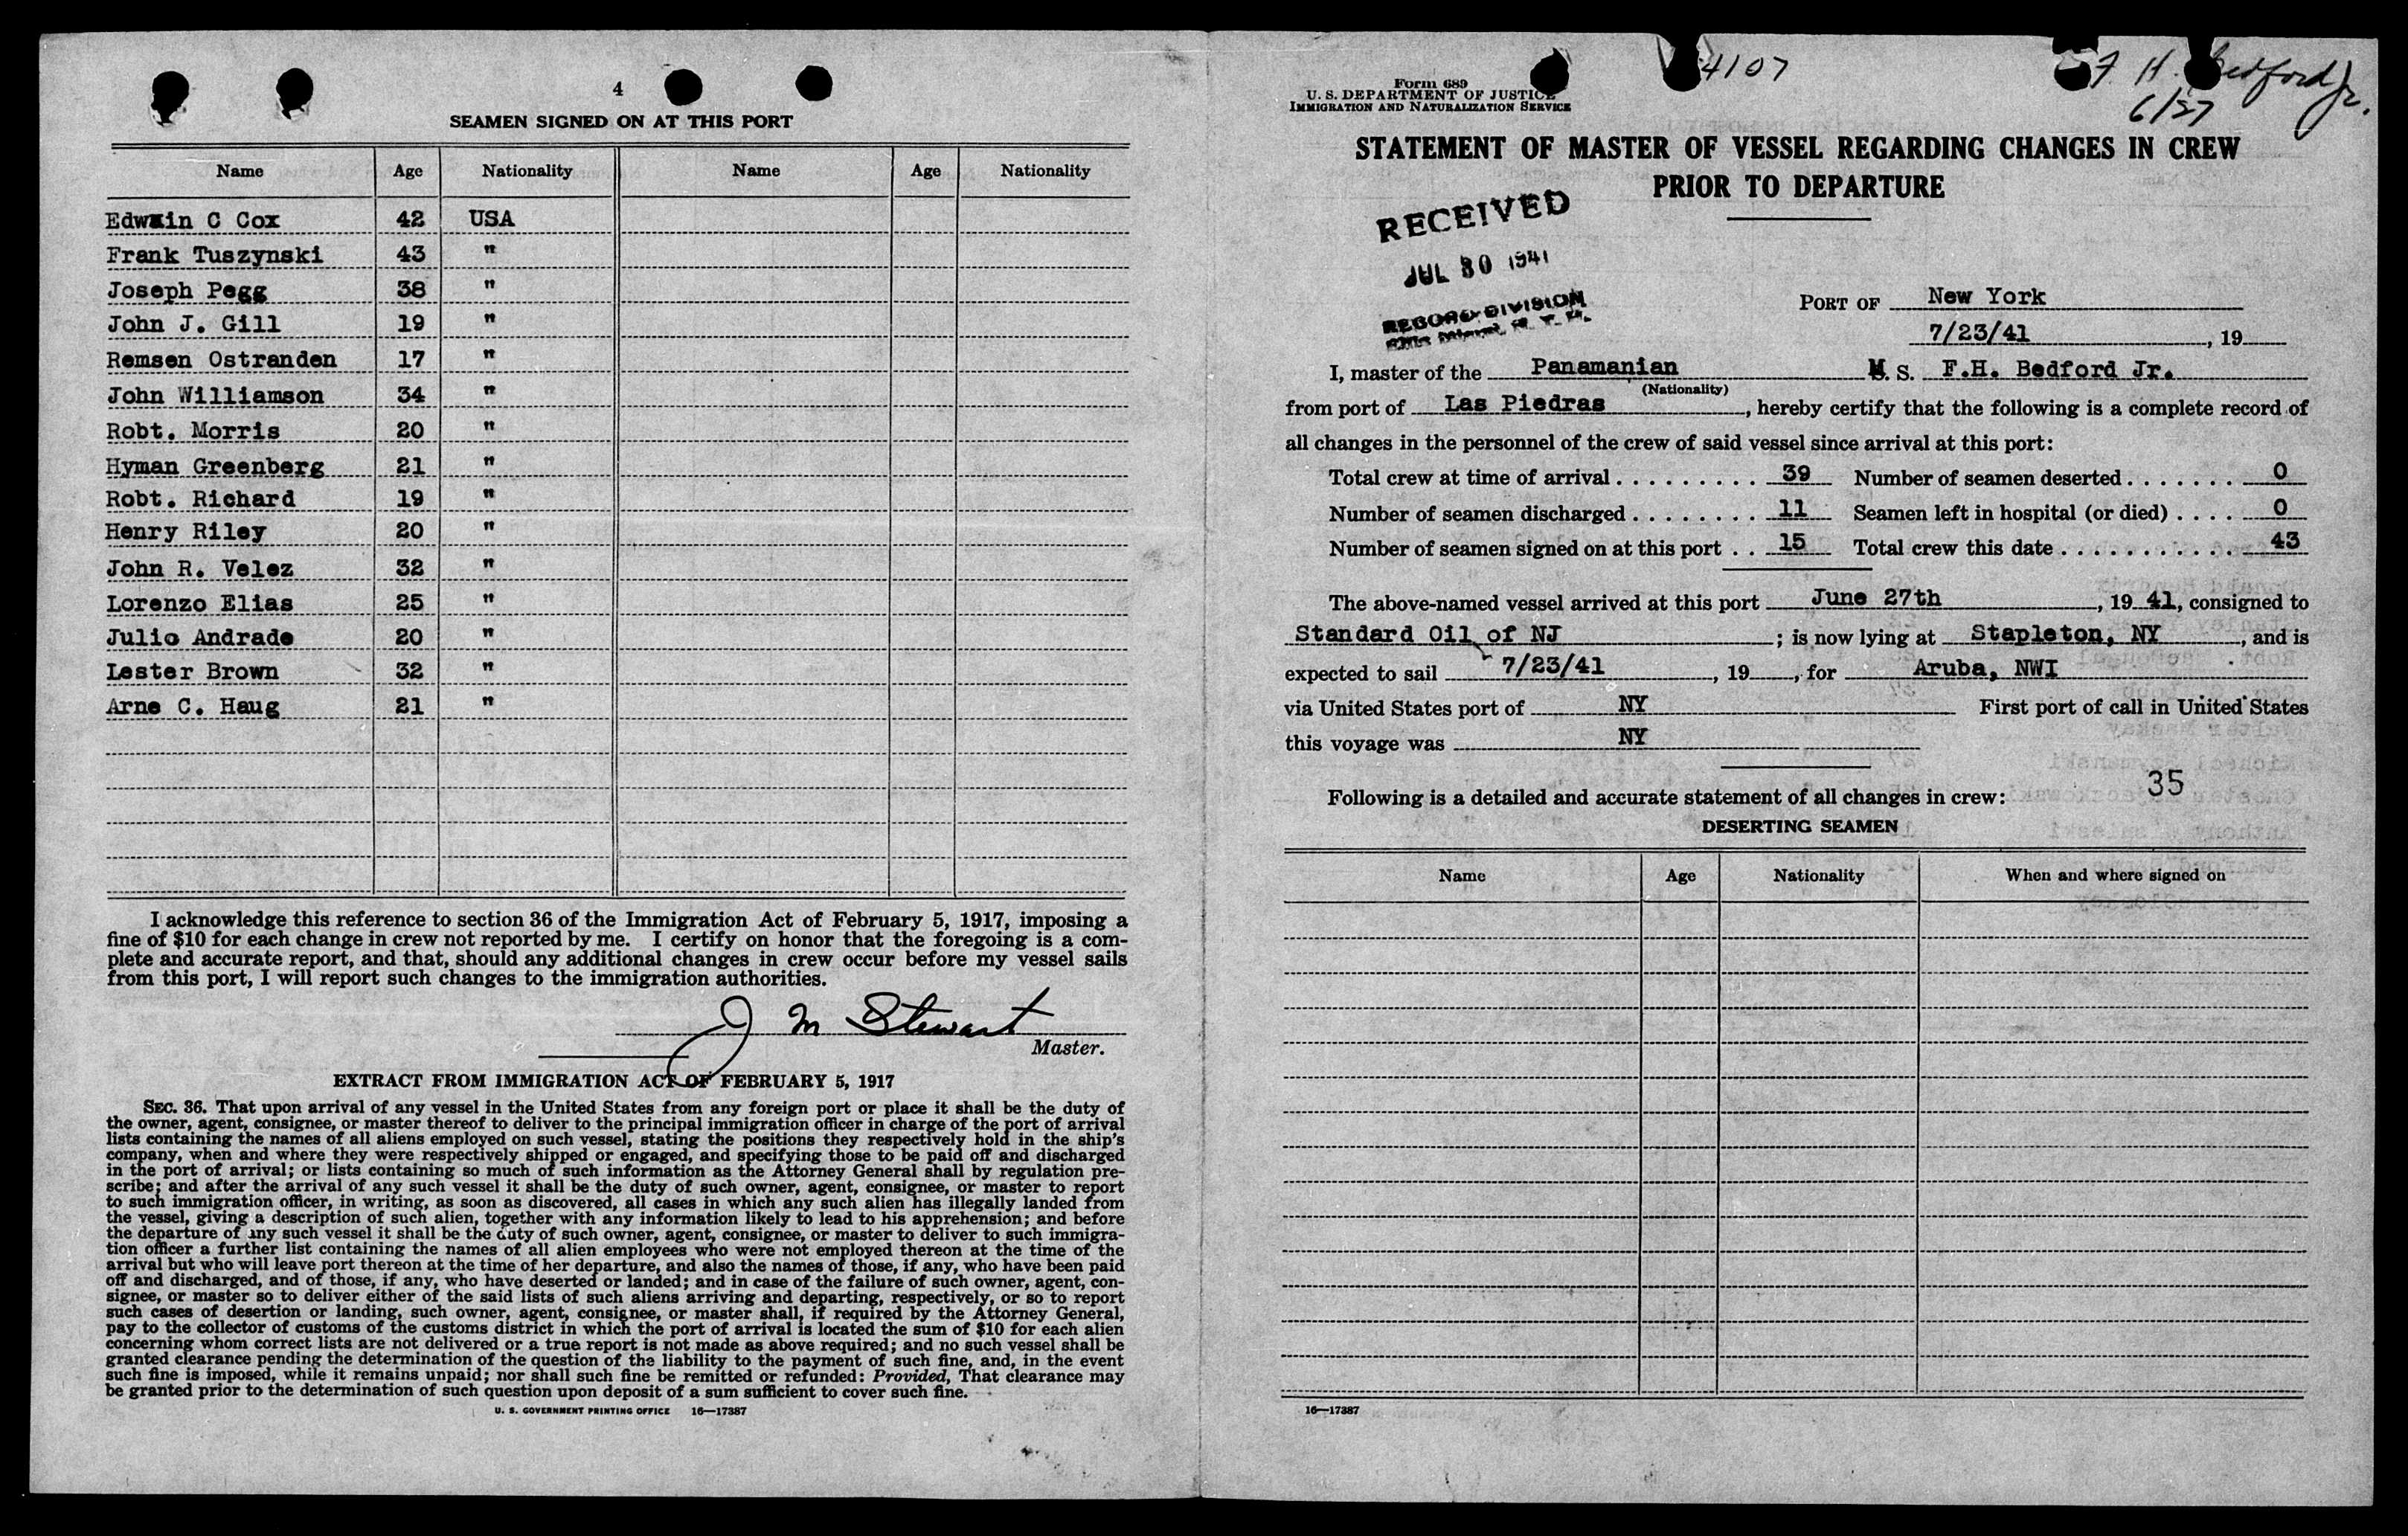 4
SEAMEN SIGNED ON AT THIS PORT
Name Age Nationality Name Age Nationality
Edwain C Cox 42 USA
Frank Tuszynski 43 "
Joseph Pegg 38 "
John J. Gill 19 "
Remsen Ostranden 17 "
John Williamson 34 "
Robt. Morris 20 "
Hyman Greenberg 21 "
Robt. Richard 19 "
Henry Riley 20 "
John R. Velez 32 "
Lorenzo Elias 25 "
Julio Andrade 20 "
Lester Brown 32 "
Arne C. Haug 21 "
I acknowledge this reference to section 36 of the Immigration Act of February 5, 1917, imposing a
fine of $10 for each change in crew not reported by me. I certify on honor that the foregoing is a com-
plete and accurate report, and that, should any additional changes in crew occur before my vessel sails
from this port, I will report such changes to the immigration authorities.
J M Stewart
Master.
EXTRACT FROM IMMIGRATION ACT OF FEBRUARY 5, 1917
SEC. 36. That upon arrival of any vessel in the United States from any foreign port or place it shall be the duty of
the owner, agent, consignee, or master thereof to deliver to the principal immigration officer in charge of the port of arrival
lists containing the names of all aliens employed on such vessel, stating the positions they respectively hold in the ship's
company, when and where they were respectively shipped or engaged, and specifying those to be paid off and discharged
in the port of arrival; or lists containing so much of such information as the Attorney General shall by regulation pre-
scribe; and after the arrival of any such vessel it shall be the duty of such owner, agent, consignee, or master to report
to such immigration officer, in writing, as soon as discovered, all cases in which any such alien has illegally landed from
the vessel, giving a description of such alien, together with any information likely to lead to his apprehension; and before
the departure of any such vessel it shall be the duty of such owner, agent, consignee, or master to deliver to such immigra-
tion officer a further list containing the names of all alien employees who were not employed thereon at the time of the
arrival but who will leave port thereon at the time of her departure, and also the names of those, if any, who have been paid
off and discharged, and of those, if any, who have deserted or landed; and in case of the failure of such owner, agent, con-
signee, or master so to deliver either of the said lists of such aliens arriving and departing, respectively, or so to report
such cases of desertion or landing, such owner, agent, consignee, or master shall, if required by the Attorney General,
pay to the collector of customs of the customs district in which the port of arrival is located the sum of $10 for each alien
concerning whom correct lists are not delivered or a true report is not made as above required; and no such vessel shall be
granted clearance pending the determination of the question of the liability to the payment of such fine, and, in the event
such fine is imposed, while it remains unpaid; nor shall such fine be remitted or refunded: Provided, That clearance may
be granted prior to the determination of such question upon deposit of a sum sufficient to cover such fine.
U. S. GOVERNMENT PRINTING OFFICE 16—17387
Form 689
U. S. DEPARTMENT OF JUSTICE
IMMIGRATION AND NATURALIZATION SERVICE
4107
F H. Bedford Jr.
6/27
STATEMENT OF MASTER OF VESSEL REGARDING CHANGES IN CREW
PRIOR TO DEPARTURE
RECEIVED
JUL 30 1941
RECORD DIVISION
PORT OF New York
7/23/41, 19
I, master of the Panamanian M. S. F.H. Bedford Jr.
(Nationality)
from port of Las Piedras, hereby certify that the following is a complete record of
all changes in the personnel of the crew of said vessel since arrival at this port:
Total crew at time of arrival . . . . . . . . . 39 Number of seamen deserted . . . . . . . 0
Number of seamen discharged . . . . . . . . 11 Seamen left in hospital (or died) . . . . 0
Number of seamen signed on at this port . . 15 Total crew this date . . . . . . . . . . . 43
The above-named vessel arrived at this port June 27th, 19 41, consigned to
Standard Oil of NJ; is now lying at Stapleton, NY, and is
expected to sail 7/23/41, 19, for Aruba, NWI
via United States port of NY First port of call in United States
this voyage was NY
35
Following is a detailed and accurate statement of all changes in crew:
DESERTING SEAMEN
Name Age Nationality When and where signed on
16—17387